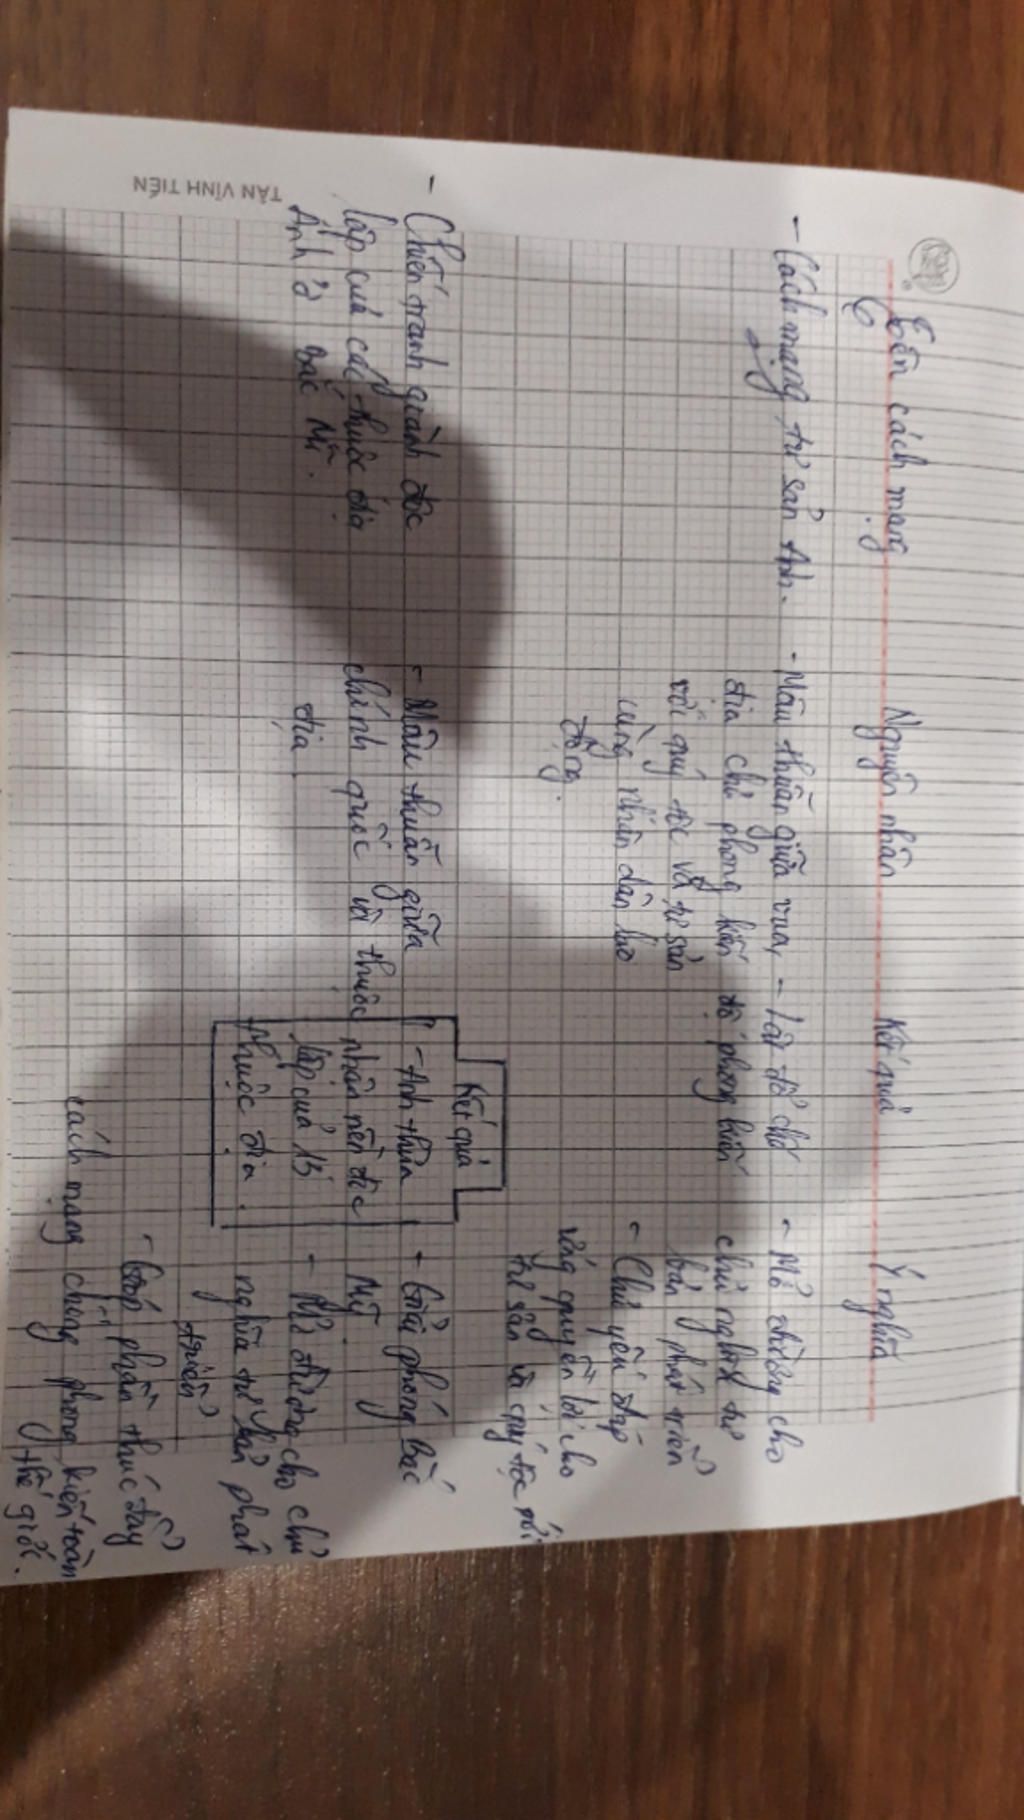 Tên cách mạng Nguyên nhân Kết quả Ý nghĩa
- Cách mạng tư sản Anh. - Mâu thuẫn giữa vua, - Lật đổ chế - Mở đường cho
địa chủ phong kiến độ phong kiến chủ nghĩa tư
với quý tộc và tư sản bản phát triển
cùng nhân dân lao - Chủ yếu đáp
động. ứng quyền lợi cho
tư sản và quý tộc mới.
Kết quả
- Chiến tranh giành độc - Mâu thuẫn giữa - Anh thừa - Giải phóng Bắc
lập của các thuộc địa chính quốc và thuộc nhận nền độc Mỹ.
Anh ở Bắc Mĩ. địa. lập của 13 - Mở đường cho chủ
thuộc địa. nghĩa tư bản phát
triển
- Góp phần thúc đẩy
cách mạng chống phong kiến toàn
thế giới.
TÂN VĨNH TIẾN